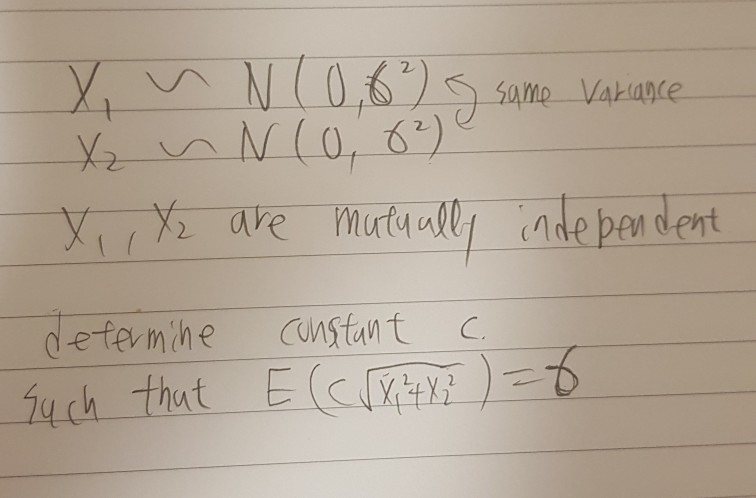 X₁ ~ N(0, σ²) same variance
X₂ ~ N(0, σ²)
X₁, X₂ are mutually independent
determine constant c.
such that E(c√(X₁²+X₂²)) = σ